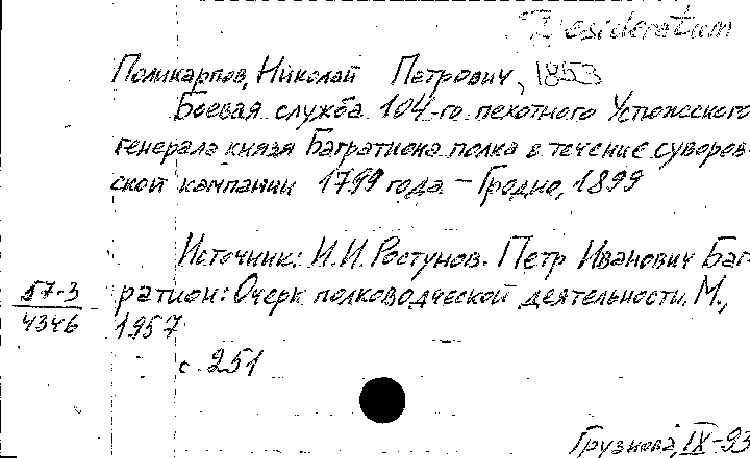 Desideratum
Поликарпов, Николай Петрович, 1853
Боевая служба 104-го пехотного Устюжского
генерала князя Багратиона полка в течение суворов-
ской кампании 1799 года. – Гродно, 1899
Источник: И.И. Ростунов. Петр Иванович Баг-
57-3 ратион: Очерк полководческой деятельности. М.,
4346 1957
с. 251
Грузнова, IX-93